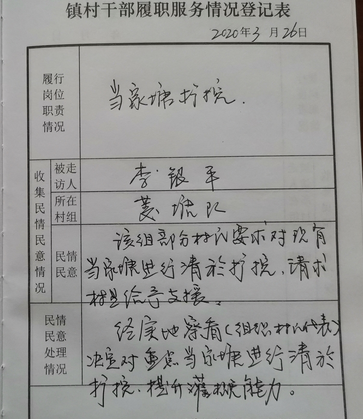 镇村干部履职服务情况登记表
2020年3月26日
履行
岗位
职责
情况
当家塘护挖.
收集民情民意情况
被走
访人
李银平
所在
村组
菱塘队
民情
民意
该组部分村民要求对现有
当家塘进行清於护挖,请求
村里给予支援。
民情
民意
处理
情况
经实地察看(组织村民代表)
决定对重点当家塘进行清於
护挖,提升灌溉能力。